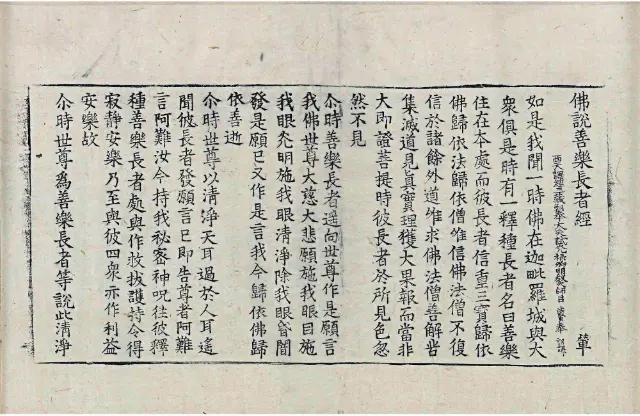 佛說善樂長者經
如是我聞一時佛在迦毗羅城與大
衆俱是時有一釋種長者名曰善樂
住在本處而彼長者信重三寶歸依
佛歸依法歸依僧唯信佛法僧不復
信於諸餘外道唯求佛法僧善解苦
集滅道見真實理獲大果報而當非
大即證菩提時彼長者於所見色忽
然不見
尒時善樂長者遥向世尊作是願言
我佛世尊大慈大悲願施我眼目施
我眼光明施我眼清淨除我眼昏闇
發是願已又作是言我今歸依佛歸
依善逝
尒時世尊以清淨天耳過於人耳遙
聞彼長者發願言已即告尊者阿難
言阿難汝今持我秘密神呪往彼釋
種善樂長者處與作救拔護持令得
寂静安樂乃至與彼四衆亦作利益
安樂故
尒時世尊為善樂長者等說此清淨